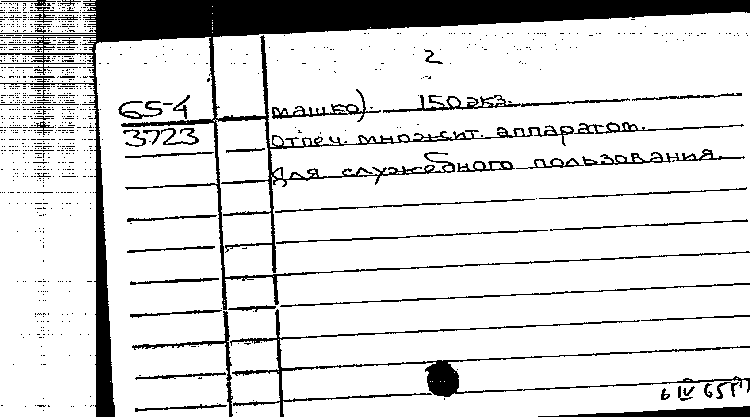 2
65-4 машко). 150 экз.
3723 Отпеч. множит. аппаратом.
Для служебного пользования.
6 IV 65г